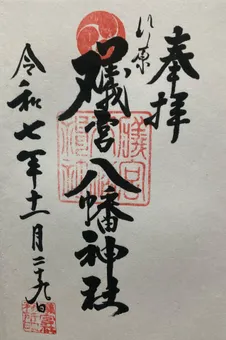 奉拝
礒宮八幡神社
令和七年十一月二十九日